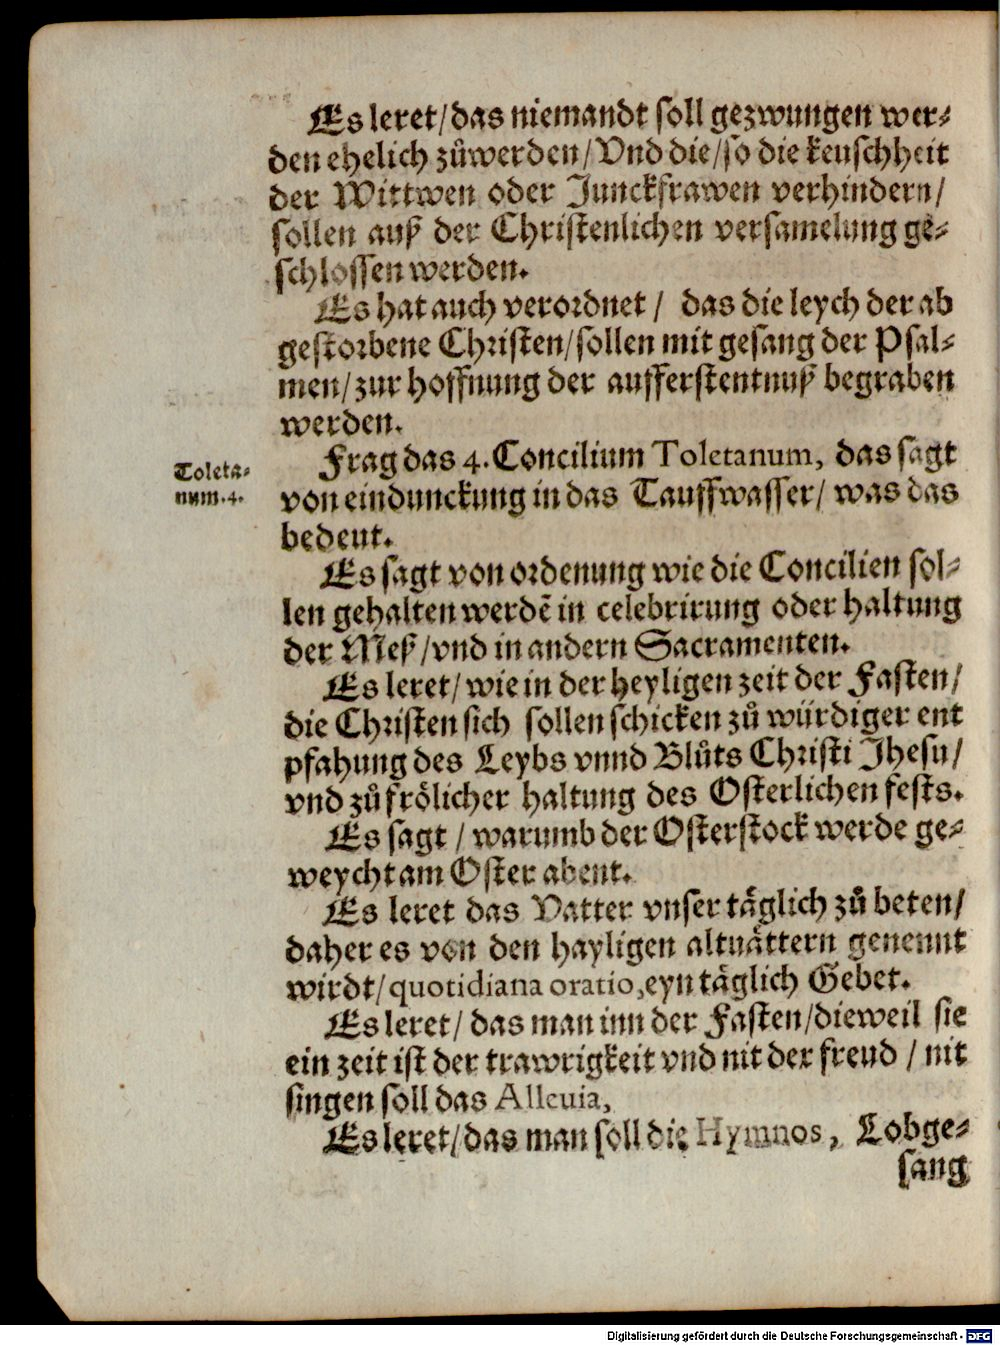 Es leret/das niemandt soll gezwungen wer⸗
den ehelich zůwerden/Vnd die/so die keuschheit
der Wittwen oder Junckfrawen verhindern/
sollen auß der Christenlichen versamelung ge⸗
schlossen werden.
Es hat auch verordnet / das die leych der ab
gestorbene Christen/sollen mit gesang der Psal⸗
men/zur hoffnung der aufferstentnuß begraben
werden.
Toleta⸗
num.4.
Frag das 4. Concilium Toletanum, das sagt
von eindunckung in das Tauffwasser/ was das
bedeut.
Es sagt von ordenung wie die Concilien sol⸗
len gehalten werdẽ in celebrirung oder haltung
der Meß/vnd in andern Sacramenten.
Es leret/ wie in der heyligen zeit der Fasten/
die Christen sich sollen schicken zů würdiger ent
pfahung des Leybs vnnd Blůts Christi Jhesu/
vnd zů frölicher haltung des Osterlichen fests.
Es sagt / warumb der Osterstock werde ge⸗
weycht am Oster abent.
Es leret das Vatter vnser täglich zů beten/
daher es von den hayligen altuättern genennt
wirdt/quotidiana oratio,eyn täglich Gebet.
Es leret/ das man inn der Fasten/dieweil sie
ein zeit ist der trawrigkeit vnd nit der freud / nit
singen soll das Alleuia,
Es leret/das man soll die Hymnos, Lobge⸗
sang
Digitalisierung gefördert durch die Deutsche Forschungsgemeinschaft - DFG